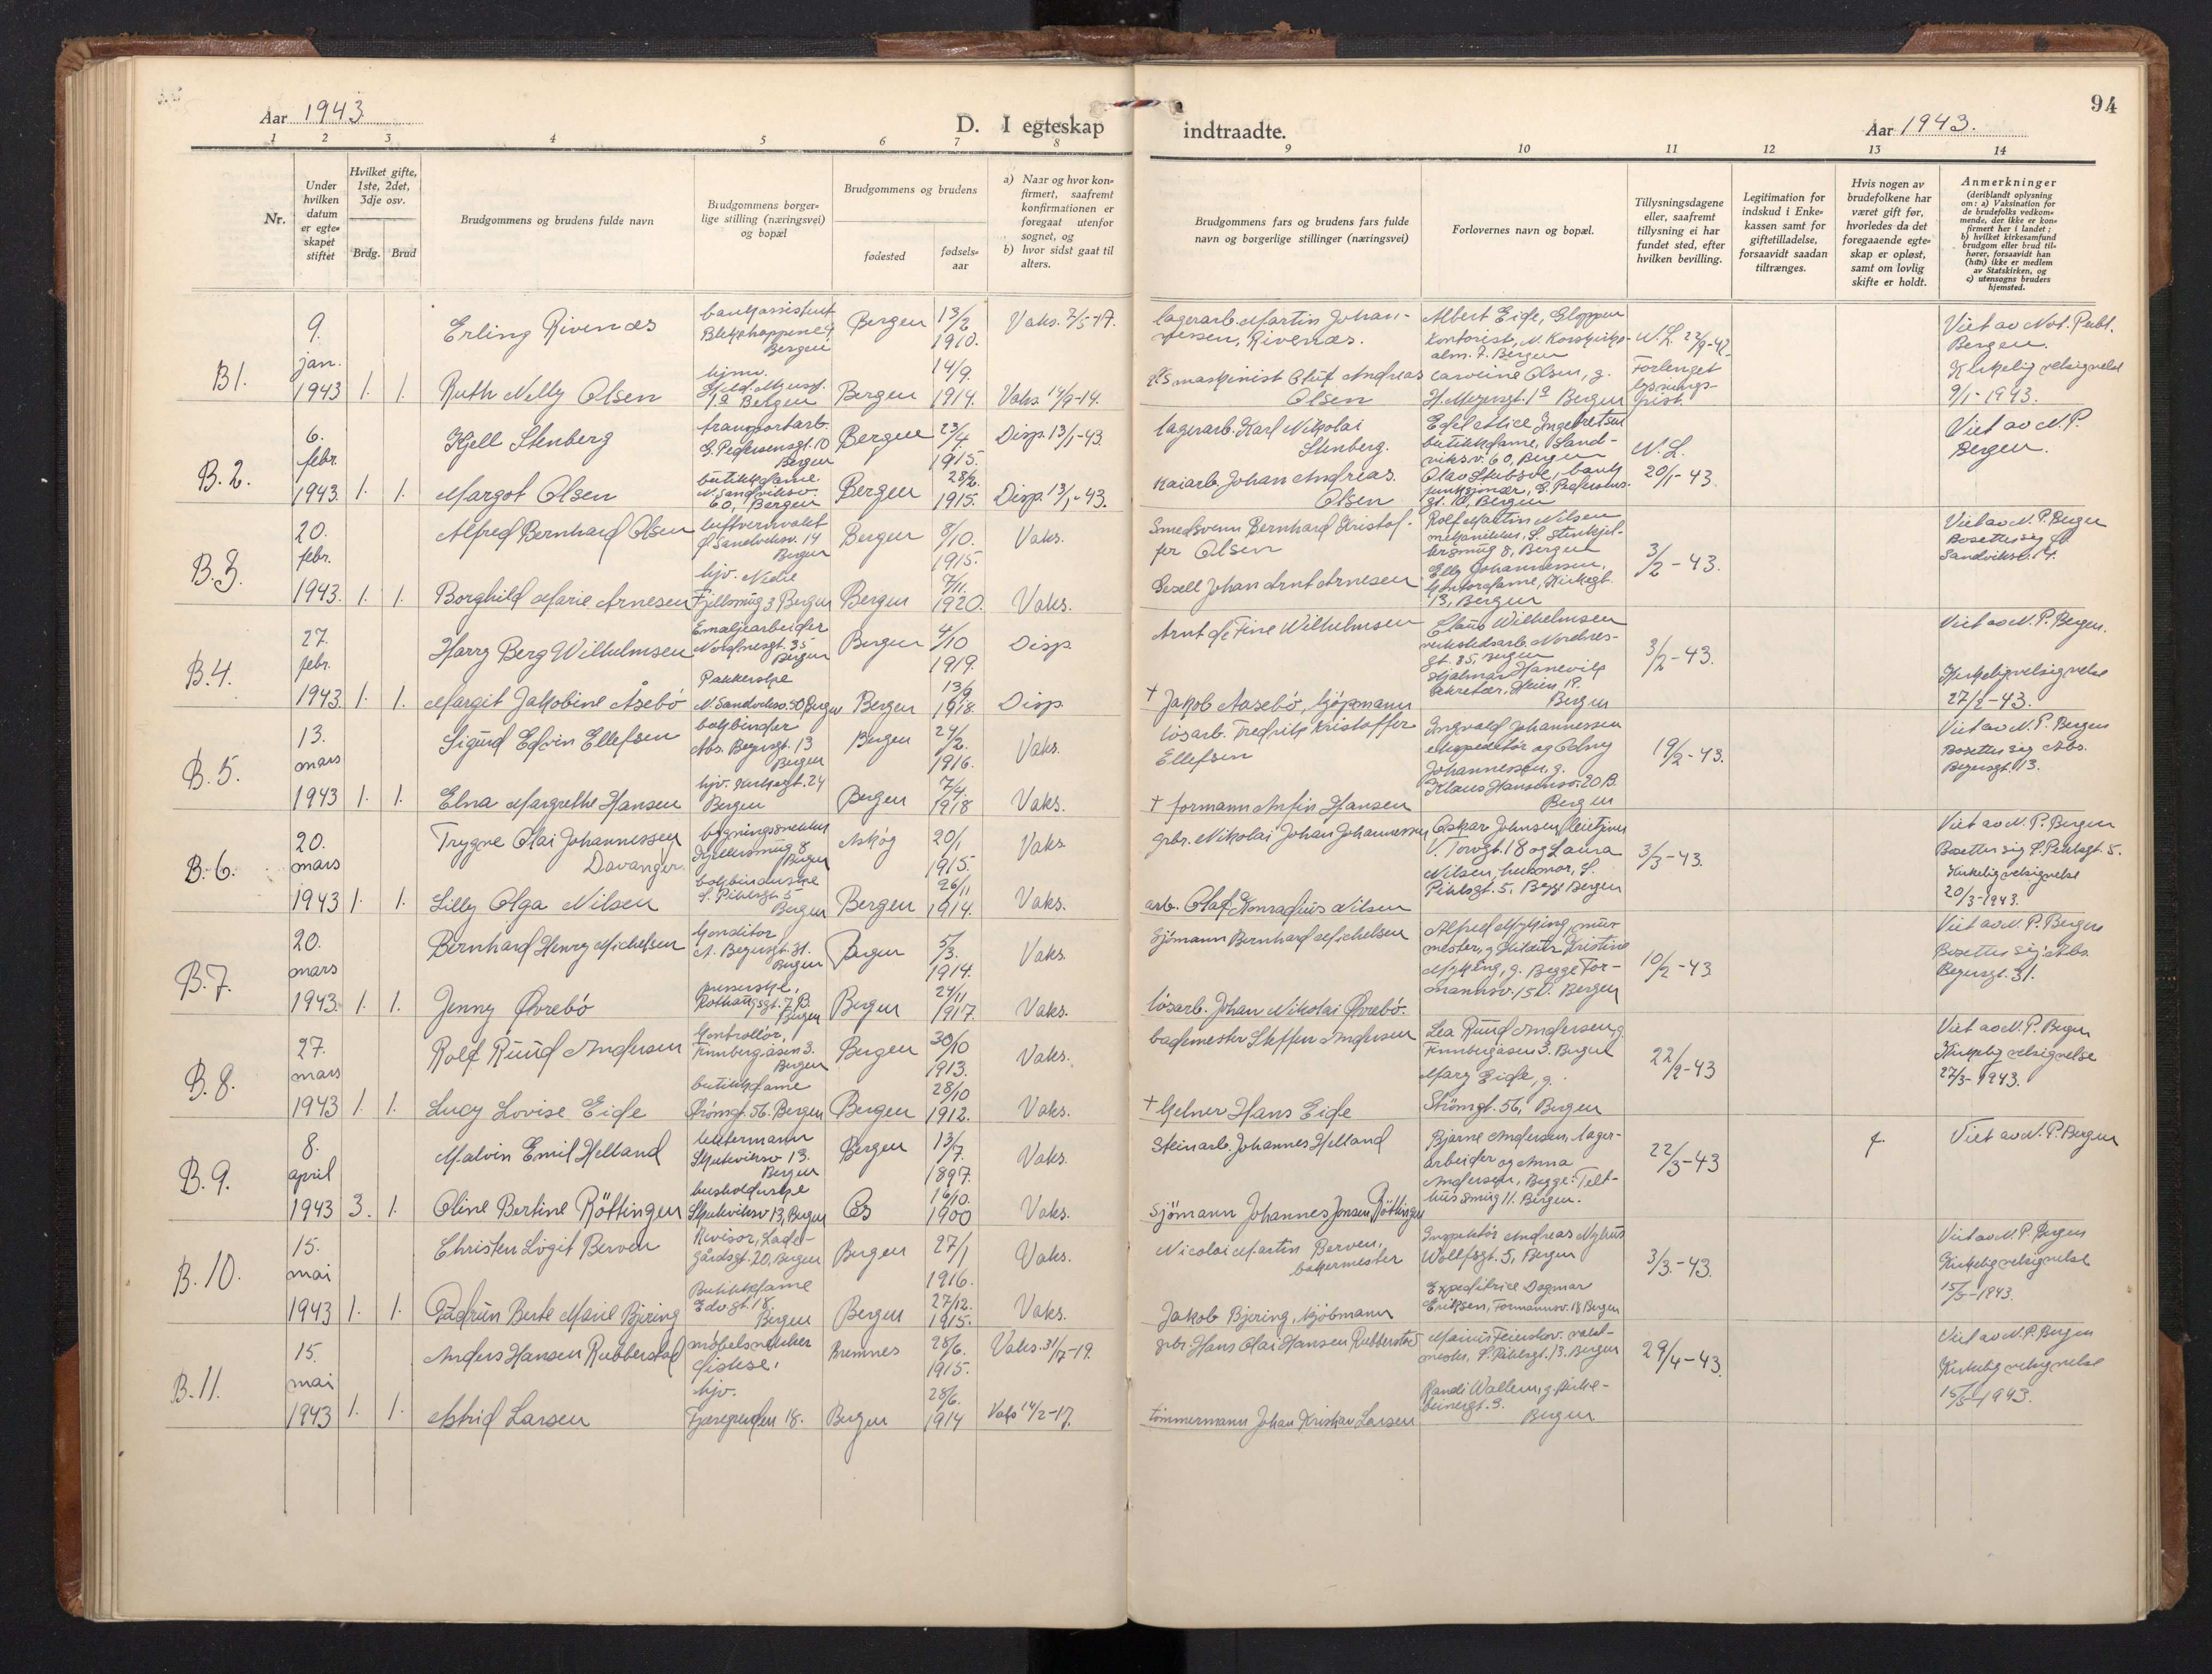 94
Aar 1943.
D. I egteskap
indtraadte.
Aar 1943.
1 2 3 4 5 6 7 8 9 10 11 12 13 14
Nr.
Under hvilken datum er egteskapet stiftet
Hvilket gifte, 1ste, 2det, 3dje osv.
Brdg. Brud
Brudgommens og brudens fulde navn
Brudgommens borgerlige stilling (næringsvei) og bopæl
Brudgommens og brudens
fødested
fødselsaar
a) Naar og hvor konfirmert, saafremt konfirmationen er foregaat utenfor sognet, og
b) hvor sidst gaat til alters.
Brudgommens fars og brudens fars fulde navn og borgerlige stillinger (næringsvei)
Forlovernes navn og bopæl.
Tillysningsdagene eller, saafremt tillysning ei har fundet sted, efter hvilken bevilling.
Legitimation for indskud i Enkekassen samt for giftetilladelse, forsaavidt saadan tiltrænges.
Hvis nogen av brudefolkene har været gift før, hvorledes da det foregaaende egteskap er opløst, samt om lovlig skifte er holdt.
Anmerkninger
(deriblandt oplysning om: a) Vaksination for de brudefolks vedkommende, der ikke er konfirmert her i landet; b) hvilket kirkesamfund brudgom eller brud tilhører, forsaavidt han (hun) ikke er medlem av Statskirken, og c) utensogns bruders hjemsted.
B 1.
9. jan. 1943 1. 1.
Erling Rivenæs
Bergen 13/2 1910.
Vaks. 7/5-17.
lagerarb. Martin Johannessen, Rivenæs.
Albert Eide, Gloppen
Kontorist,
alm. 7. Bergen
Viet av Not. Publ.
Bergen.
Kirkelig velsignelse
9/1-1943.
Ruth Nelly Olsen
1a Bergen
Bergen 14/9. 1914.
Vaks. 14/9-14.
maskinist Oluf Andreas Olsen
1a Bergen
Forlenget lysnings-
frist.
B. 2.
6. febr. 1943. 1. 1.
Kjell Stenberg
transportarb.
G. Pedersensgt. 10
Bergen
Bergen 23/4 1915.
Disp. 13/1-43.
lagerarb. Karl Nikolai Stenberg.
Edel Alice Ingebretsen
butikkdame, Sand-
viksv. 60, Bergen
N. L.
20/1-43.
Viet av N. P.
Bergen.
Margot Olsen
butikkdame.
N. Sandviksv.
60, Bergen
Bergen 28/2. 1915.
Disp. 13/1-43.
Kaiarb. Johan Andreas Olsen
B. 3.
20. febr. 1943. 1. 1.
Alfred Bernhard Olsen
Bergen
Bergen 8/10. 1915.
Vaks.
Smedsvenn Bernhard Kristoffer Olsen
Rolf Martin Nilsen
3/2-43.
Viet av N. P. Bergen
Bosetter sig
Borghild Marie Arnesen
Fjellsmug 3 Bergen
Bergen 7/11. 1920.
Vaks.
Johan Arnt Arnesen
Elly Johannessen,
kontordame, Kirkegt.
13, Bergen
B. 4.
27. febr. 1943. 1. 1.
Harry Berg Wilhelmsen
Emaljearbeider
Nordnesgt. 35
Bergen
Bergen 4/10 1919.
Disp.
Arnt de Fine Wilhelmsen
Claus Wilhelmsen
3/2-43.
Viet av N. P. Bergen.
Kirkelig velsignelse
27/2-43.
Margit Jakobine Åsebö
Pakkerske
N. Sandviksv. 50 Bergen
Bergen 13/9 1918.
Disp.
† Jakob Aasebö, kjöpmann
Hjalmar Hanevik
sekretær, Bergen
B. 5.
13. mars 1943 1. 1.
Sigurd Edvin Ellefsen
bokbinder
Abs. Beyersgt. 13
Bergen
Bergen 24/2. 1916.
Vaks.
lösarb. Fredrik Kristoffer Ellefsen
Ingvald Johannessen
ekspeditör og
Johannessen, g.
Klaus Hansensv. 20 B.
Bergen
19/2-43.
Viet av N. P. Bergen
Bosetter sig Abs.
Beyersgt. 13.
Elna Margrethe Hansen
hjv. Kirkegt. 24
Bergen
Bergen 7/4. 1918
Vaks.
† formann Anfin Hansen
B. 6.
20. mars 1943 1. 1.
Trygve Olai Johannessen Davanger.
bygningssnekker
Bergen
Askøy 20/1 1915.
Vaks.
gbr. Nikolai Johan Johannessen
Oskar Johnsen,
V. Torvgt. 18 og Laura
Nilsen,
Pihlsgt. 5. Begge Bergen
3/3-43.
Viet av N. P. Bergen
Bosetter sig S. Pihlsgt. 5.
Kirkelig velsignelse
20/3-1943.
Lilly Olga Nilsen
bokbinderske
S. Pihlsgt. 5
Bergen
Bergen 26/11 1914.
Vaks.
arb. Olaf Konradius Nilsen
B. 7.
20. mars 1943. 1. 1.
Bernhard Henry Michelsen
konditor
A. Beyersgt. 31.
Bergen
Bergen 5/3. 1914.
Vaks.
Sjömann Bernhard Michelsen
Alfred Myking, mur-
mester, g.
Myking, g. Begge For-
mannsv. 15 Bergen
10/2-43
Viet av N. P. Bergen
Bosetter sig Abs.
Beyersgt. 31.
Jenny Øvrebö
Rothaugsgt. 7 B.
Bergen
Bergen 24/11 1917.
Vaks.
lösarb. Johan Nikolai Øvrebö.
B. 8.
27. mars 1943 1. 1.
Rolf Ruud Andersen
Kontrollör,
Finnbergåsen 3.
Bergen
Bergen 30/10 1913.
Vaks.
bademester Steffen Andersen
Lea Ruud Andersen, g.
Finnbergåsen 3. Bergen
22/2-43
Viet av N. P. Bergen
Kirkelig velsignelse
27/3-1943.
Lucy Lovise Eide
butikkdame
Strömgt. 56. Bergen
Bergen 28/10 1912.
Vaks.
† kelner Hans Eide
Mary Eide, g.
Strömgt. 56, Bergen
B. 9.
8. april 1943 3. 1.
Malvin Emil Helland
Skuteviksv 13.
Bergen
Bergen 13/7. 1897.
Vaks.
Steinarb. Johannes Helland
Bjarne Andersen, lager-
arbeider og Anna
Andersen, Begge: Telt-
hussmug 11. Bergen.
22/3-43
f.
Viet av N. P. Bergen
Oline Bertine Röttingen
husholderske
Skuteviksv 13, Bergen
Os 16/10. 1900
Vaks.
Sjömann Johannes Jonsen Röttingen
B. 10.
15. mai 1943 1. 1.
Christen Ligit Berven
Revisor, Lade-
gårdsgt. 20, Bergen
Bergen 27/1 1916.
Vaks.
Nicolai Martin Berven, bakermester
Inspektör Andreas Nyhus
Wolffsgt. 5, Bergen
3/3.-43.
Viet av N. P. Bergen
Kirkelig velsignelse
15/5-1943.
Gudrun Berte Marie Bjering
Butikkdame
Edvgt. 18
Bergen
Bergen 27/12. 1915.
Vaks.
Jakob Bjering, kjöbmann
Expeditrice Dagmar
Eriksen, Formannsv. 18 Bergen
B. 11.
15. mai 1943 1. 1.
Anders Hansen Rubberstad
möbelsnekker
Bremnes 28/6. 1915.
Vaks. 31/7-19.
gbr. Hans Olai Hansen Rubberstad
S. Pihlsgt. 13. Bergen
29/4-43.
Viet av N. P. Bergen
Kirkelig velsignelse
15/5-1943.
Astrid Larsen
hjv.
Fjæregrenden 18.
Bergen 28/6. 1914
Vaks 14/2-17.
tömmermann Johan Kristian Larsen
Randi Wallem, g. Birke-
beinergt. 9.
Bergen.